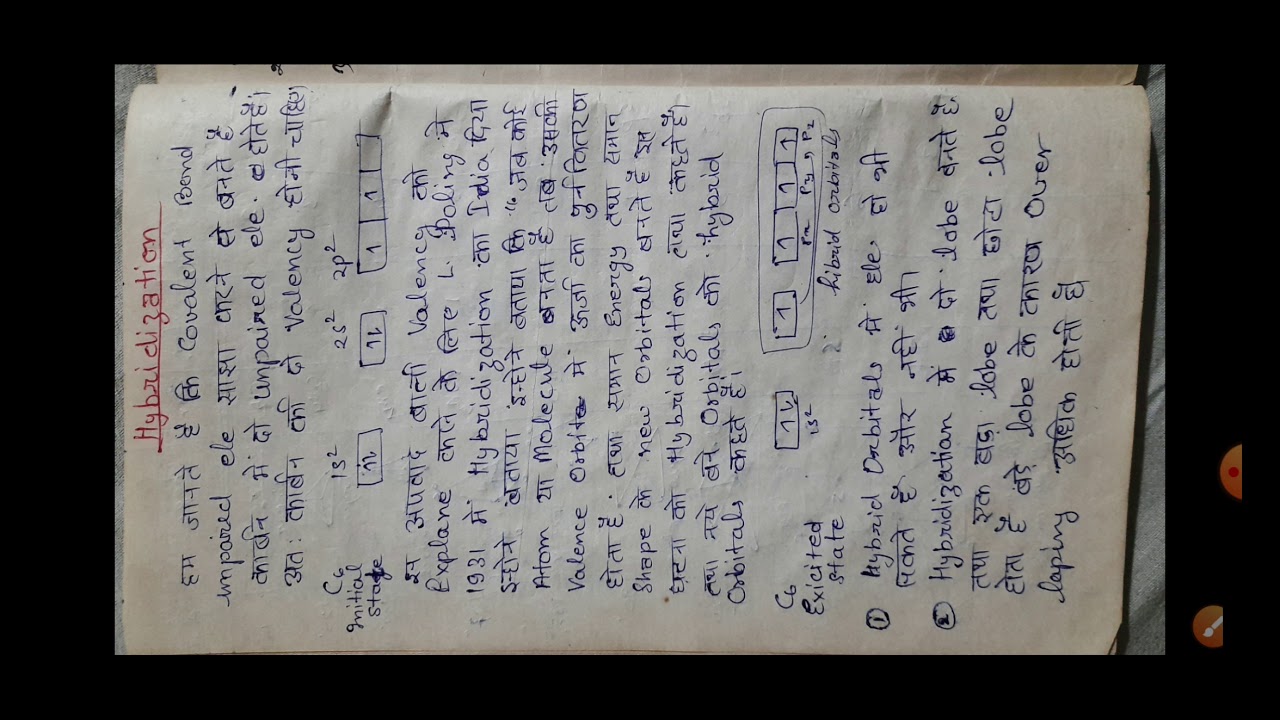 Hybridization
हम जानते है कि Covalent Bond
unpaired ele साझा करने से बनते है
कार्बन में दो unpaired ele. होते है।
अतः कार्बन की दो Valency होनी चाहिए
1s² 2s² 2p²
C₆
initial
stage
1 1
इस अपवाद वाली Valency को
Explane करने के लिए L. Poling ने
1931 में Hybridization का Idia दिया
इन्होने बताया इन्होने बताया कि "जब कोई
Atom या Molecule बनता है तब उसकी
Valence Orbit में ऊर्जा का पुर्नवितरण
होता है. तथा समान Energy तथा समान
Shape के new Orbitals बनते है इस
घटना को Hybridization तथा कहते है।
तथा नये बने Orbitals को hybrid
Orbitals कहते है।
C₆
Exicited
state
1 1 1 1
1s² Py Pz
hibrid orbitals
① Hybrid Orbitals में ele हो भी
सकते है और नहीं भी।
② Hybridization में दो lobe बनते है
तथा एक बड़ा lobe तथा छोटा lobe
होता है बड़े lobe के कारण Over
laping अधिक होती है।